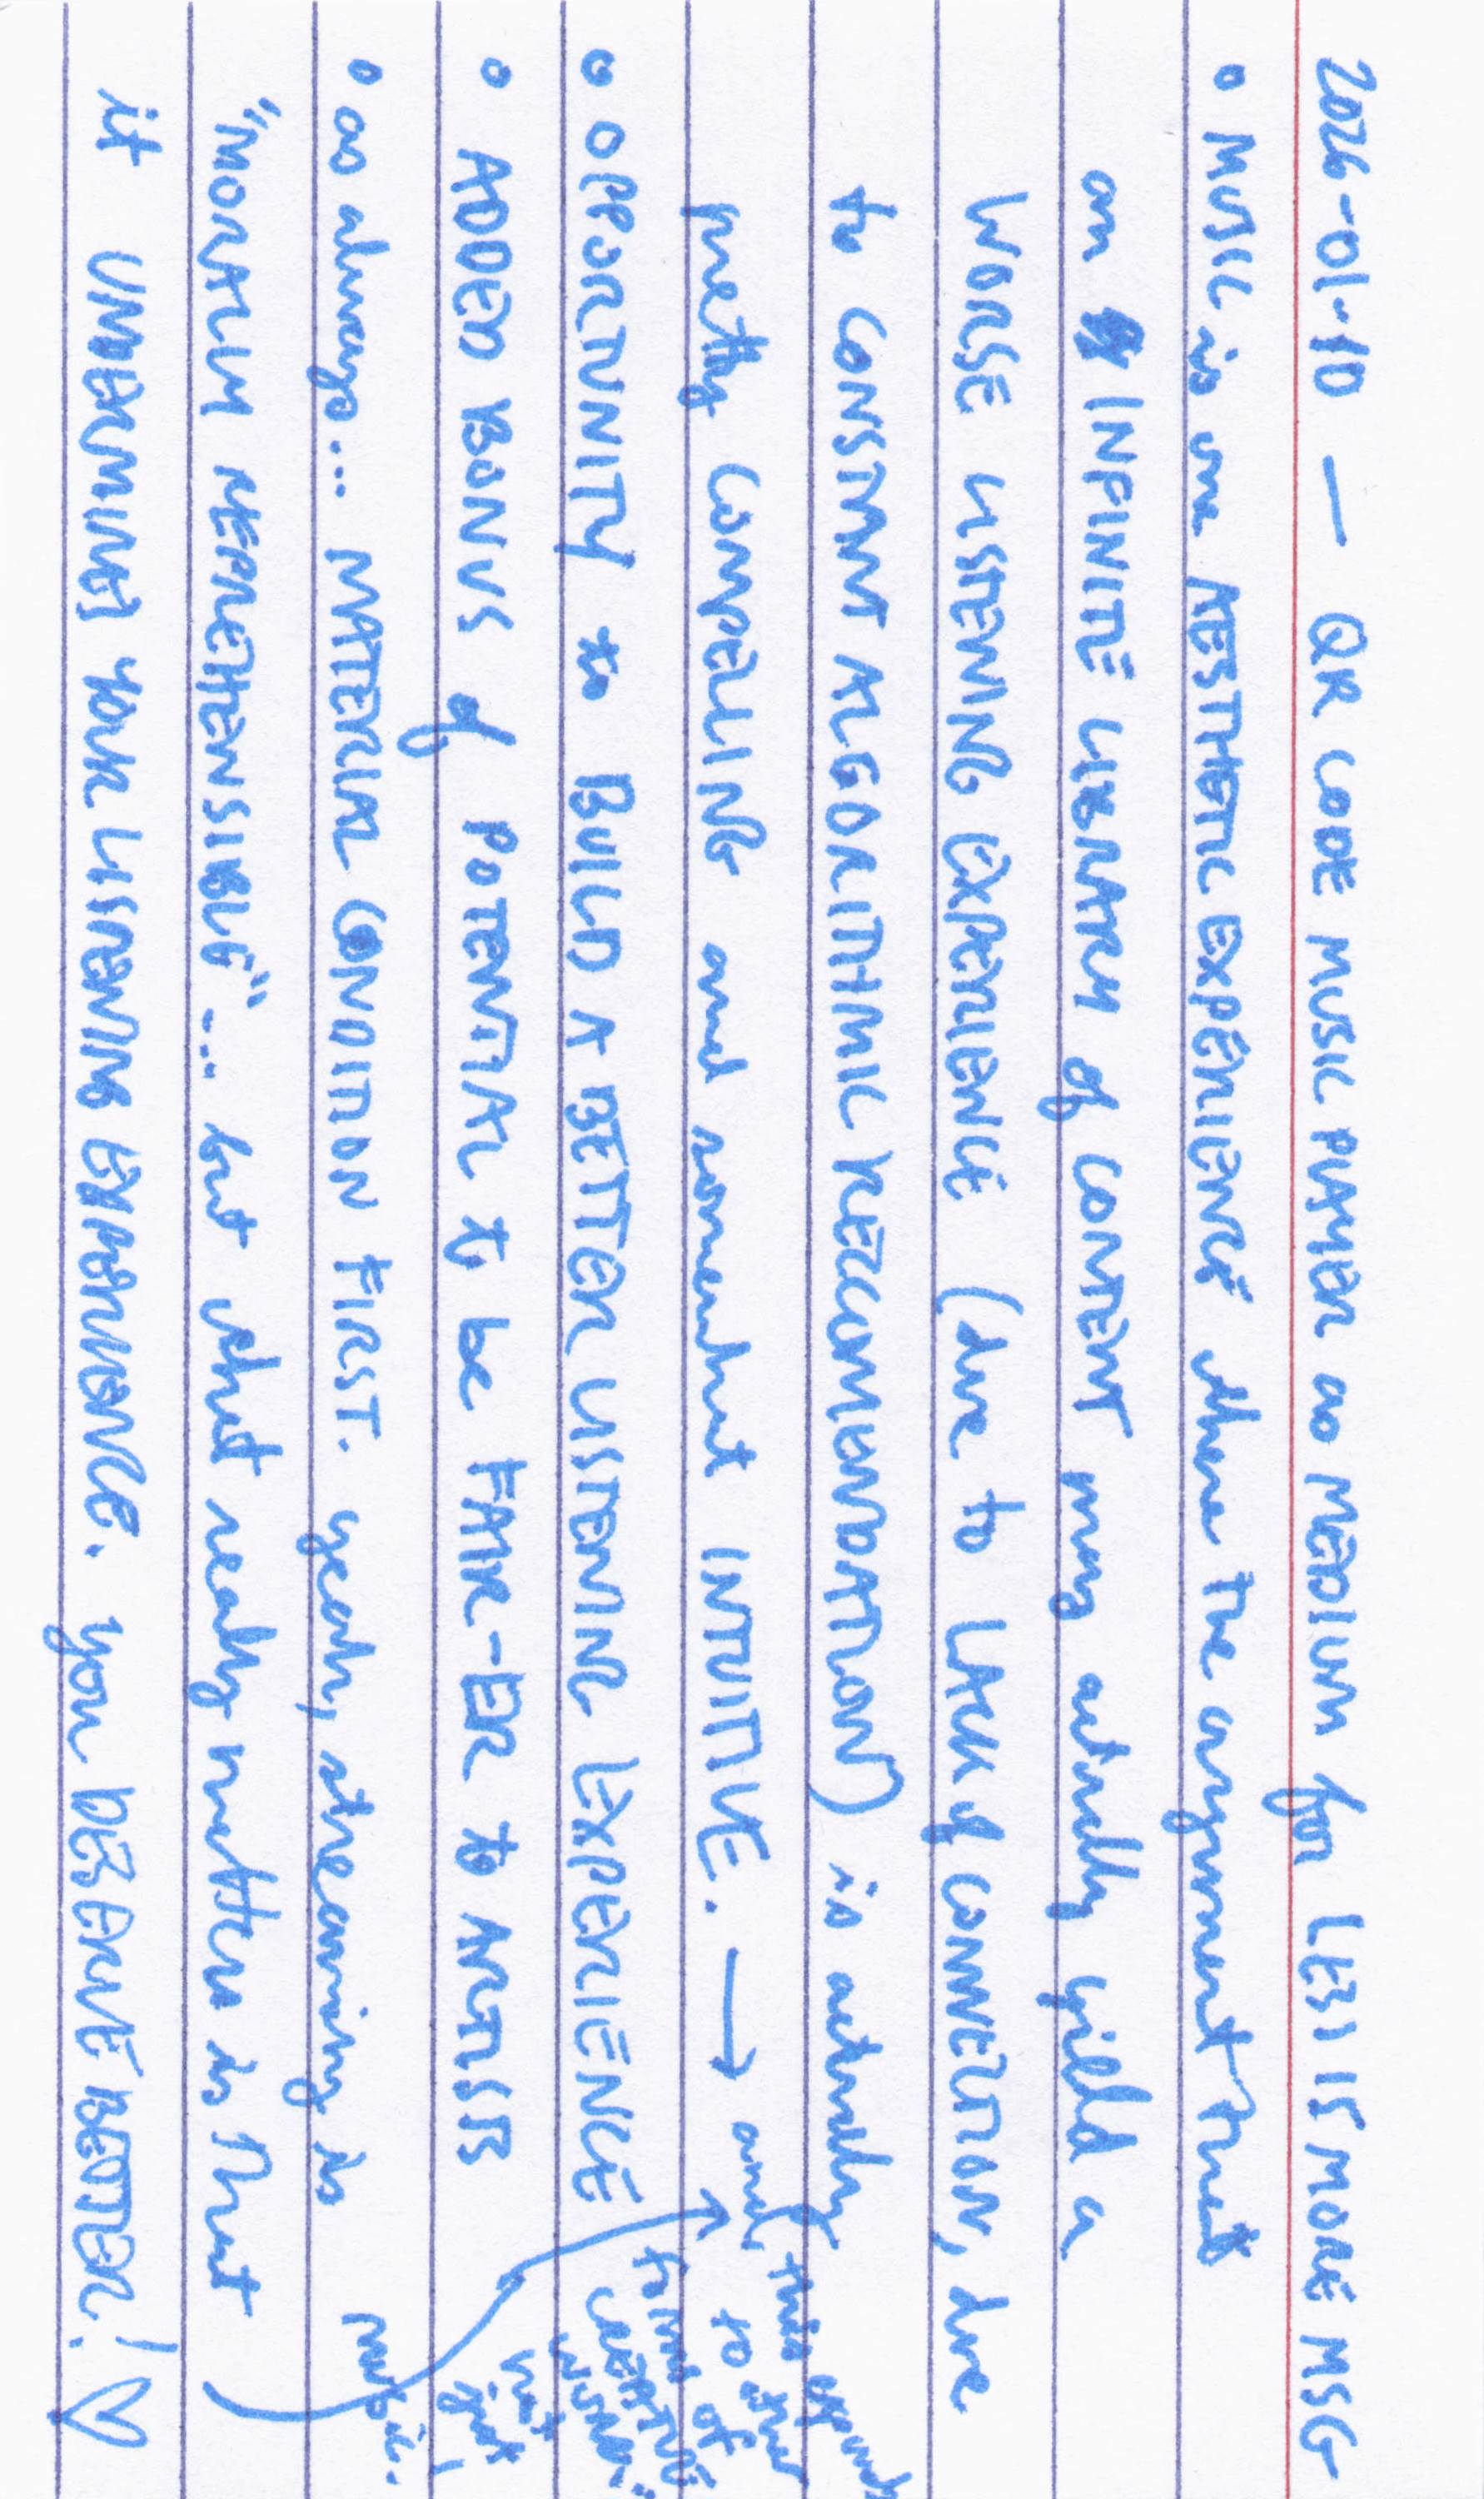 2026-01-10 — QR CODE MUSIC PLAYER as MEDIUM for LESS IS MORE MSG
• MUSIC is one AESTHETIC EXPERIENCE where the argument that
an INFINITE LIBRARY of CONTENT may actually yield a
WORSE LISTENING EXPERIENCE (due to LACK of CONNECTION, due
to CONSTANT ALGORITHMIC RECCOMENDATION) is actually
pretty COMPELLING and somewhat INTUITIVE. → and this expands
to other
forms of
CREATIVE
WORK...
not
just
music.
• OPPORTUNITY to BUILD A BETTER LISTENING EXPERIENCE
• ADDED BONUS of POTENTIAL to be FAIR-ER to ARTISTS
• as always... MATERIAL CONDITION FIRST. yeah, streaming is
"MORALLY REPREHENSIBLE"... but what really matters is that
it UNDERMINES YOUR LISTENING EXPERIENCE. you DESERVE BETTER! ♡